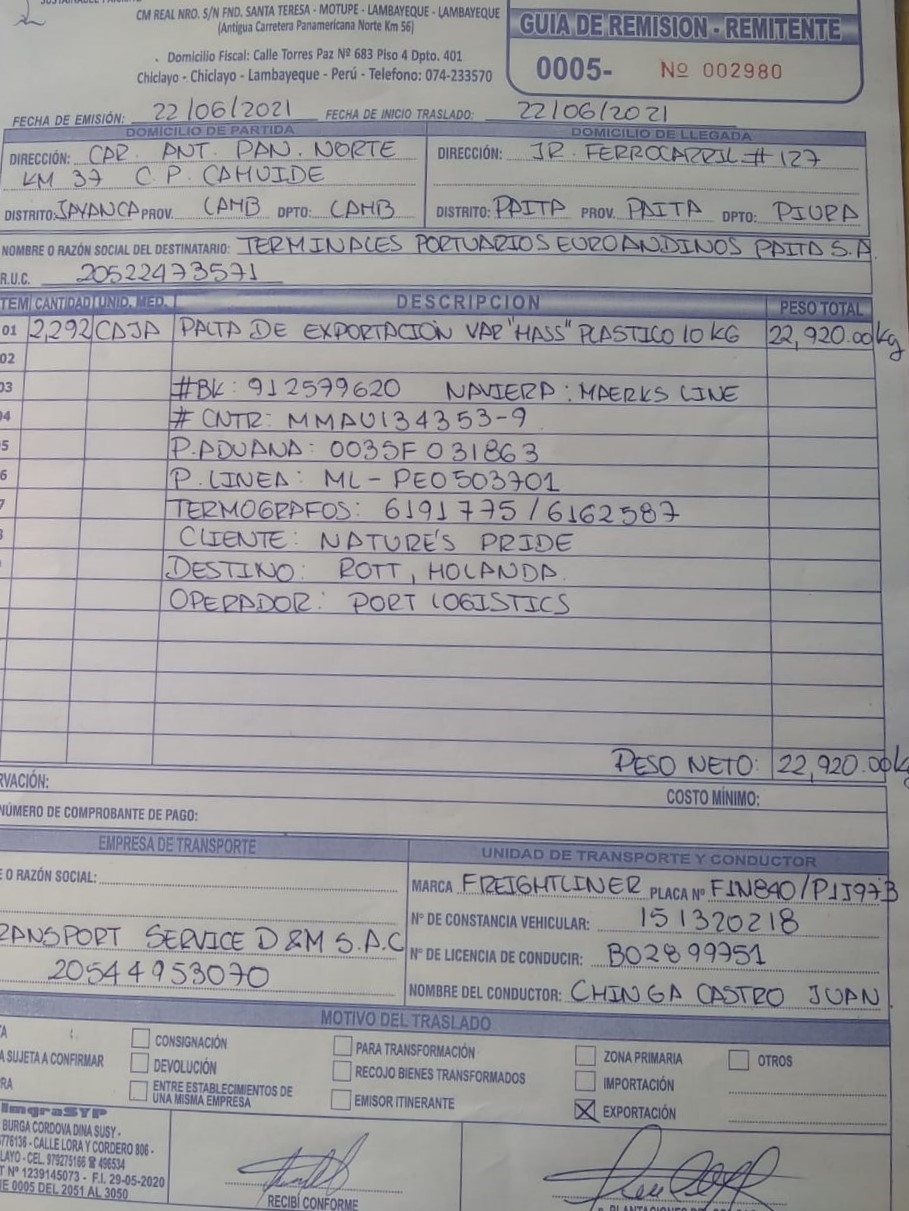 CM REAL NRO. S/N FND. SANTA TERESA - MOTUPE - LAMBAYEQUE - LAMBAYEQUE
(Antigua Carretera Panamericana Norte Km 56)
. Domicilio Fiscal: Calle Torres Paz Nº 683 Piso 4 Dpto. 401
Chiclayo - Chiclayo - Lambayeque - Perú - Telefono: 074-233570
GUIA DE REMISIÓN - REMITENTE
0005- Nº 002980
FECHA DE EMISIÓN: 22/06/2021 FECHA DE INICIO TRASLADO: 22/06/2021
DOMICILIO DE PARTIDA
DIRECCIÓN: CAR. ANT. PAN. NORTE
KM 37 C.P. CAHUIDE
DISTRITO: JAYANCA PROV. LAMB DPTO: LAMB
DOMICILIO DE LLEGADA
DIRECCIÓN: JR. FERROCARRIL # 127
DISTRITO: PAITA PROV. PAITA DPTO: PIURA
NOMBRE O RAZÓN SOCIAL DEL DESTINATARIO: TERMINALES PORTUARIOS EUROANDINOS PAITA S.A
R.U.C. 20522473571
TEM CANTIDAD UNID. MED. DESCRIPCION PESO TOTAL
01 2,292 CAJA PALTA DE EXPORTACIÓN VAR "HASS" PLASTICO 10 KG 22,920.00 kg
02
03 #BK: 912579620 NAVIERA: MAERKS LINE
4 # CNTR: MMAU134353-9
5 P. ADUANA: 0035F031863
6 P. LINEA: ML-PE0503701
7 TERMOGRAFOS: 6191775 / 6162587
CLIENTE: NATURE'S PRIDE
DESTINO: ROTT, HOLANDA.
OPERADOR: PORT LOGISTICS
PESO NETO: 22,920.00 kg
RVACIÓN:
COSTO MÍNIMO:
NÚMERO DE COMPROBANTE DE PAGO:
EMPRESA DE TRANSPORTE
E O RAZÓN SOCIAL:
RANSPORT SERVICE D&M S.A.C
20544953070
UNIDAD DE TRANSPORTE Y CONDUCTOR
MARCA FREIGHTLINER PLACA Nº F1N840/P1J97B
Nº DE CONSTANCIA VEHICULAR: 151320218
Nº DE LICENCIA DE CONDUCIR: B02899751
NOMBRE DEL CONDUCTOR: CHINGA CASTRO JUAN
MOTIVO DEL TRASLADO
TA
A SUJETA A CONFIRMAR
RA
CONSIGNACIÓN
DEVOLUCIÓN
ENTRE ESTABLECIMIENTOS DE
UNA MISMA EMPRESA
PARA TRANSFORMACIÓN
RECOJO BIENES TRANSFORMADOS
EMISOR ITINERANTE
ZONA PRIMARIA
IMPORTACIÓN
EXPORTACIÓN
OTROS
ImgraSYP
BURGA CORDOVA DINA SUSY -
5776136 - CALLE LORA Y CORDERO 806 -
LAYO - CEL. 979275166 ☎ 496534
T Nº 1239145073 - F.I. 29-05-2020
IE 0005 DEL 2051 AL 3050
RECIBÍ CONFORME